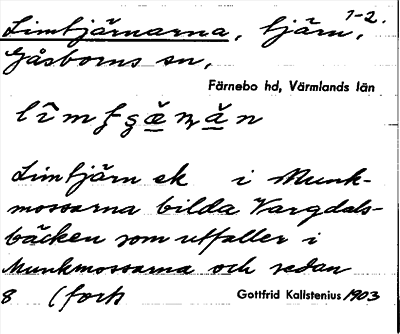 1-2.
Limtjärnarna, tjärn,
Gåsborns sn,
Färnebo hd, Värmlands län
Limtjärn ek i Munk-
mossarna bilda Vargdals-
bäcken som utfaller i
Munkmossarna och sedan
8 (forts
Gottfrid Kallstenius 1903